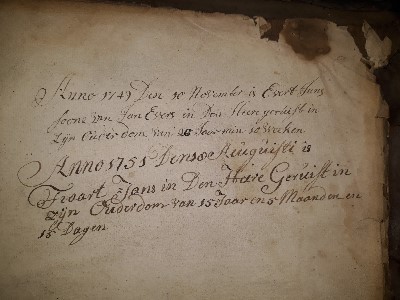 Anno 1741 Den 10 November is Evert Jans
soone van Jan Evers in Den Heere gerust in
Zijn Ouderdom van Jaar min 10 Weeken
Anno 1751 Den Auguisti is
Jans in Den Heire Geruist in
zijn Ouderdom van 15 Jaar en 5 Maanden en
18 Dagen